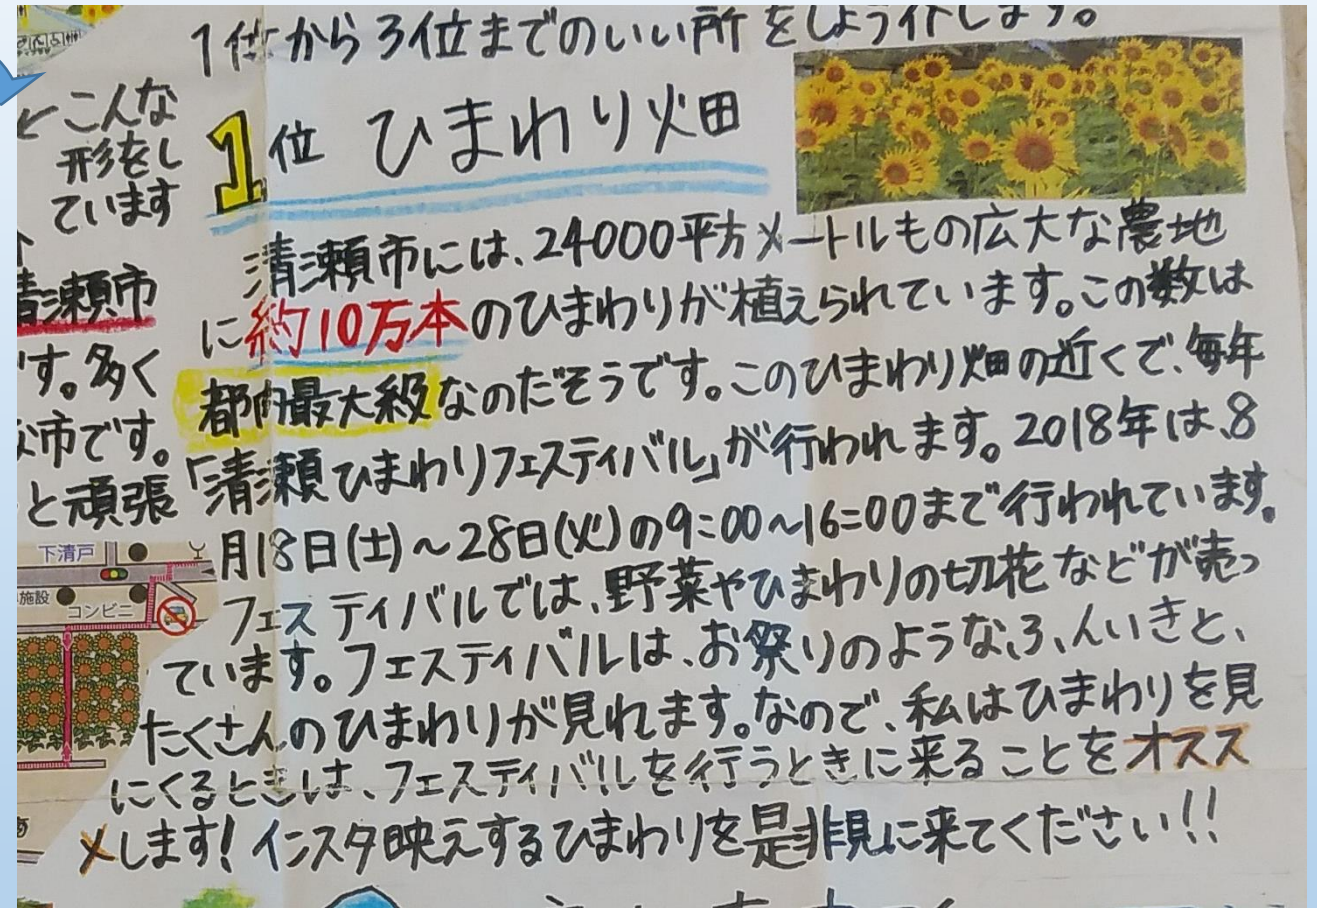 1位から3位までのいい所をしょう介します。
とこんな
形をし
ています
清瀬市
す。多く
な市です。
と頑張
1位 ひまわり畑
清瀬市には、24000平方メートルもの広大な農地
に約10万本のひまわりが植えられています。この数は
都内最大級なのだそうです。このひまわり畑の近くで、毎年
「清瀬ひまわりフェスティバル」が行われます。2018年は、8
月18日(土)～28日(火)の9:00～16:00まで行われています。
フェスティバルでは、野菜やひまわりの切花などが売っ
ています。フェスティバルは、お祭りのようなふんいきと、
たくさんのひまわりが見れます。なので、私はひまわりを見
にくるときは、フェスティバルを行うときに来ることをオスス
メします!インスタ映えするひまわりを是非見に来てください!!
下清戸
施設
コンビニ